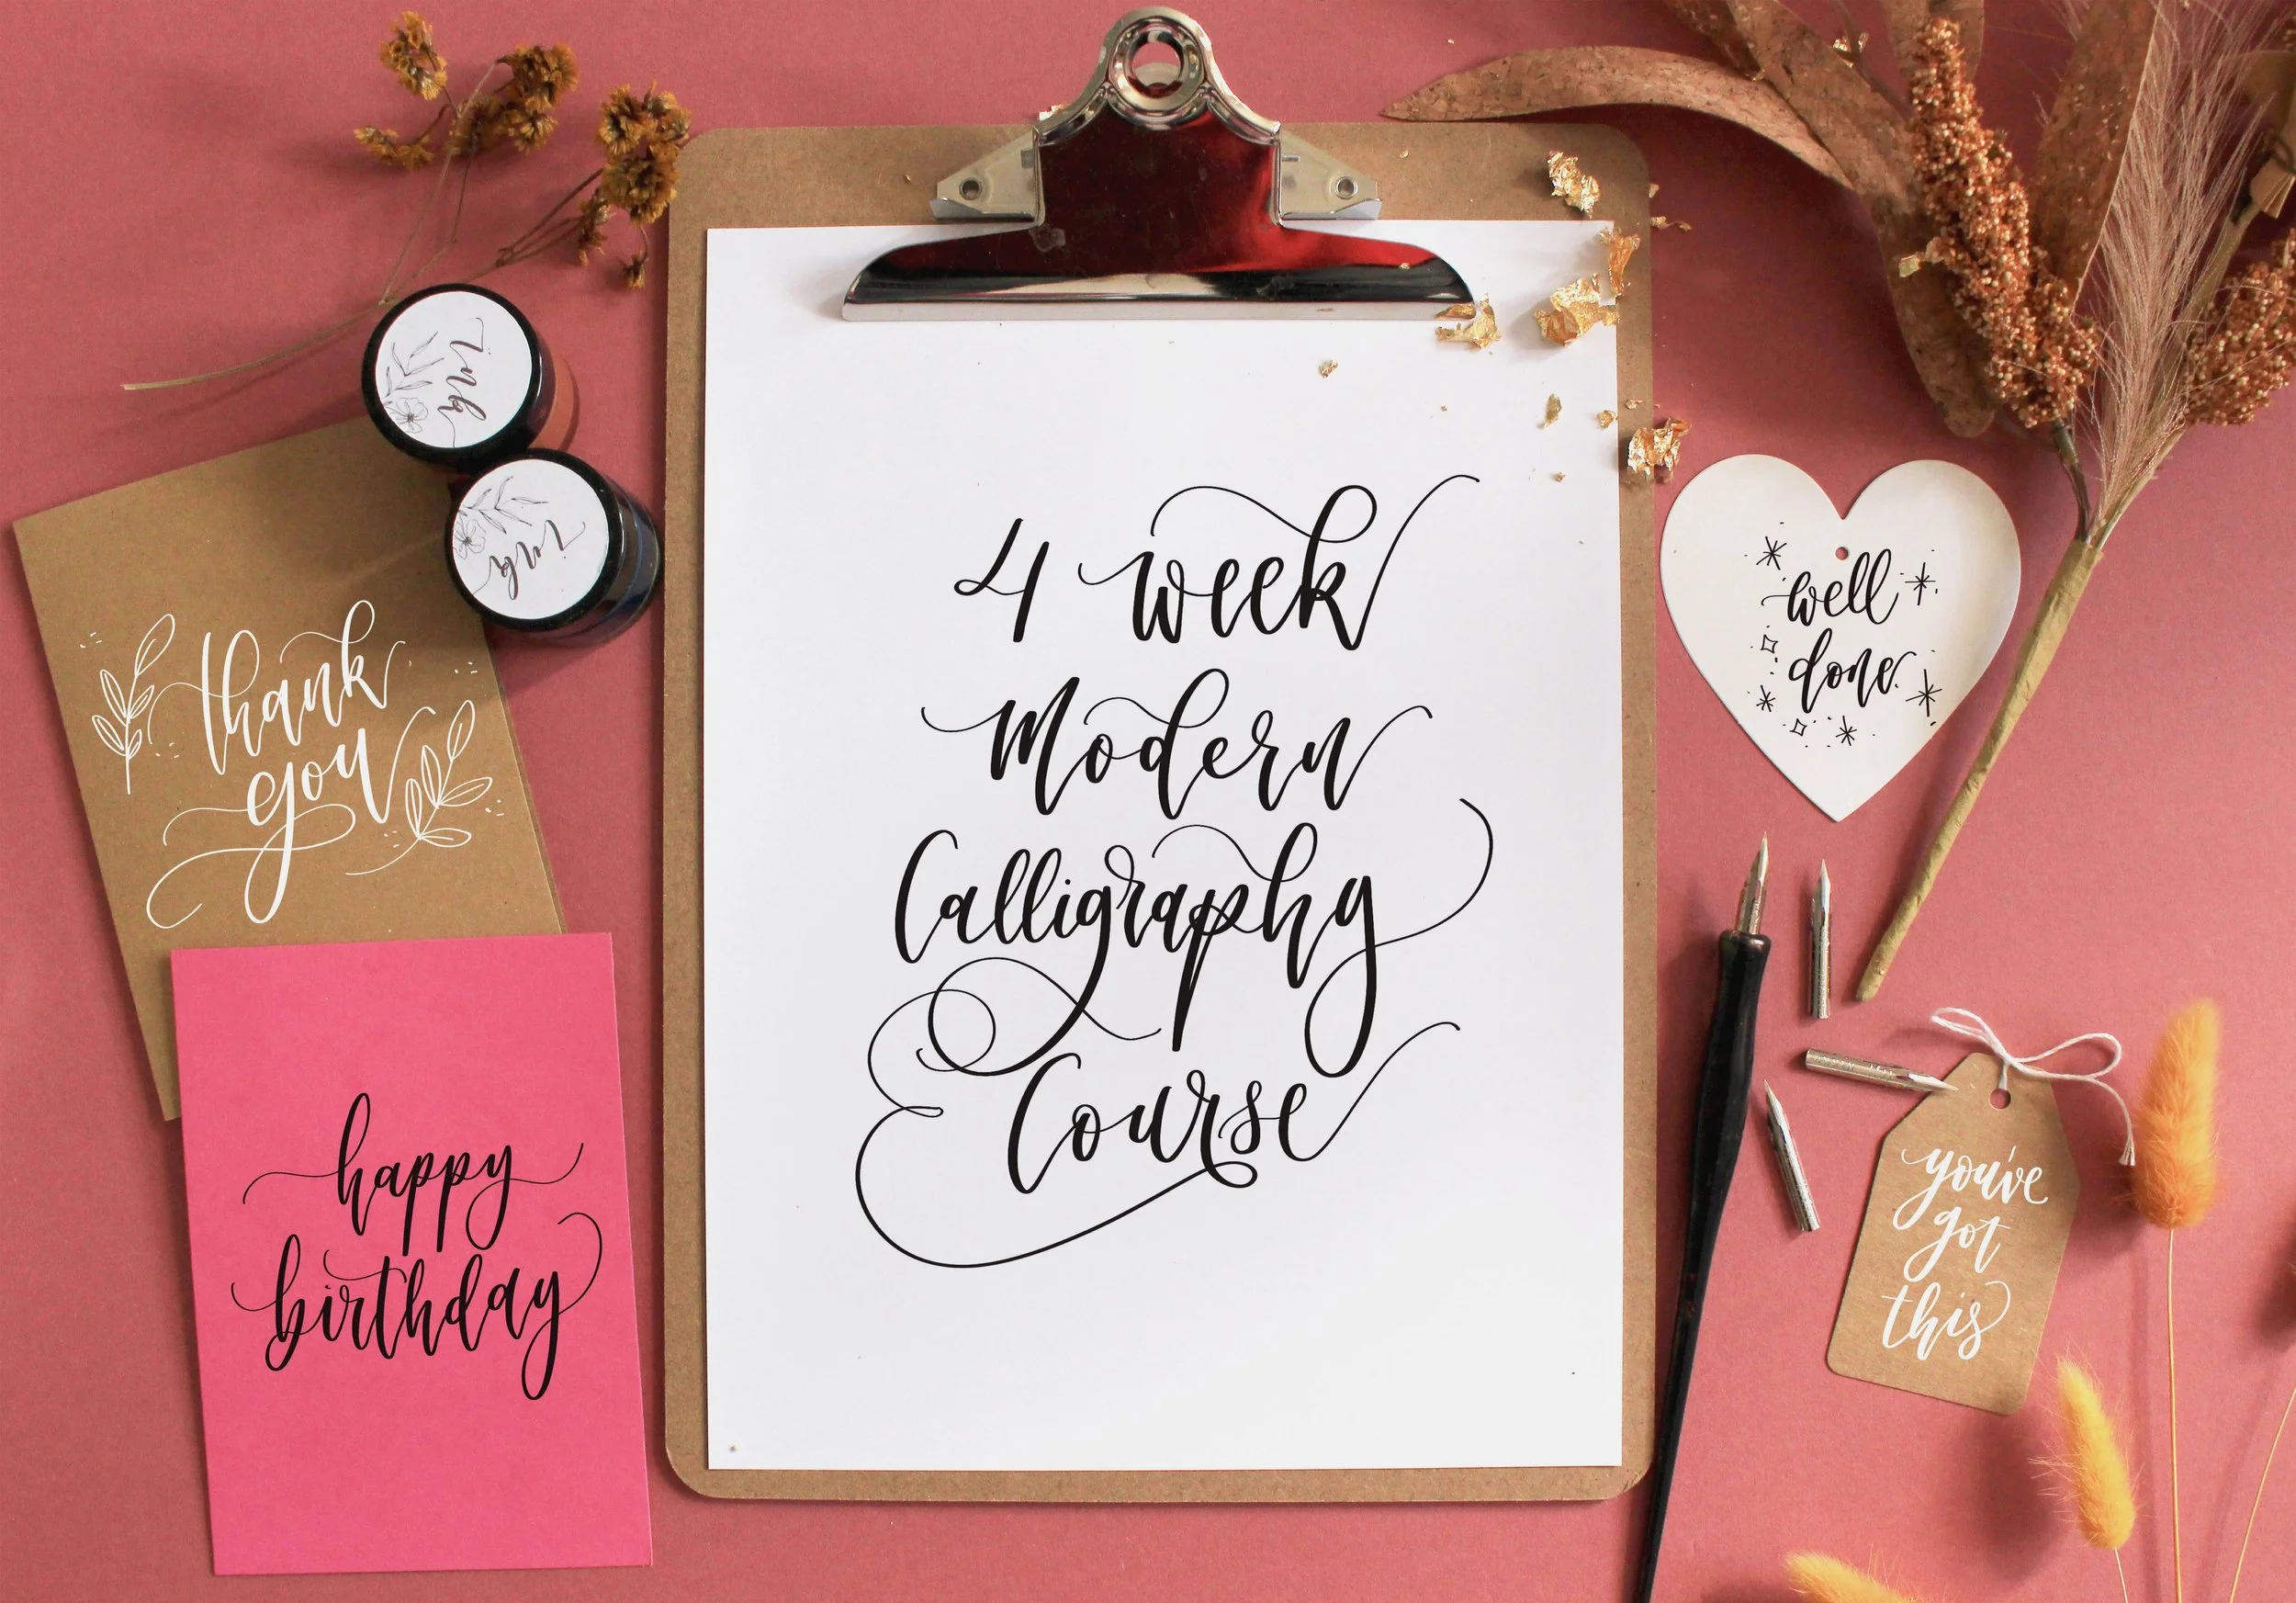 4 week
Modern
Calligraphy
Course
thank
you
happy
birthday
well
done
you've
got
this